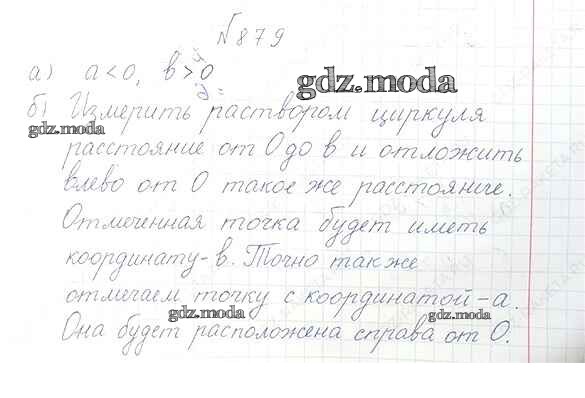 №879
а) а<0, в>0
gdz.moda
б) Измерить раствором циркуля
gdz.moda
расстояние от 0 до в и отложить
влево от 0 такое же расстояние.
Отмеченная точка будет иметь
координату -в. Точно также
отмечаем точку с координатой -а.
gdz.moda
gdz.moda
Она будет расположена справа от 0.